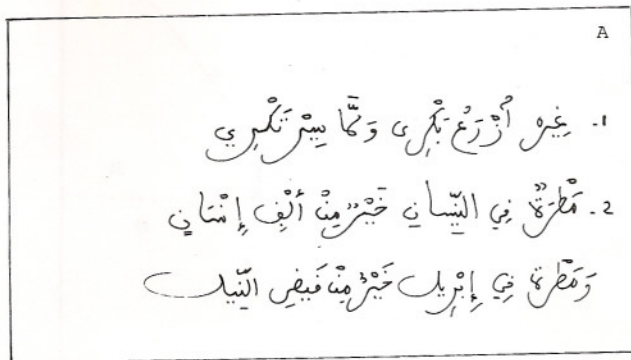 A
1. غِيرْ أُزْرَعْ بَكْرِى سِيرْ تَكْرِي
2. مَطْرَةٌ فِي النِّيسَانِ خَيْرٌ مِنْ أَلْفِ إِنْسَانِ
وَمَطْرَة فِي إِبْرِيل خَيْرٌ مِنْ فَيْضِ النِّيل